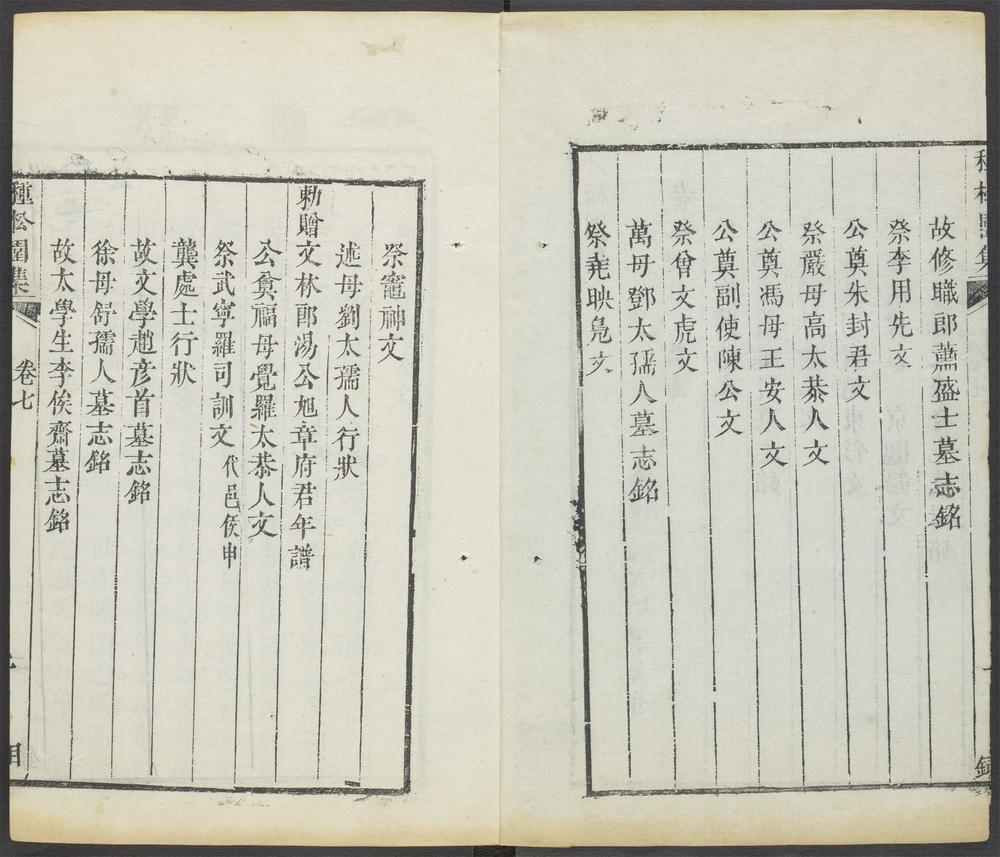 故修職郎蕭盛士墓志銘
祭李用先文
公奠朱封君文
祭嚴母高太恭人文
公奠馮母王安人文
公奠副使陳公文
祭曾文虎文
萬母鄧太孺人墓志銘
祭堯映鳧文
祭竈神文
述母劉太孺人行狀
勅贈文林郎湯公旭章府君年譜
公奠福母覺羅太恭人文
祭武寧羅司訓文 代邑侯申
龔處士行狀
故文學趙彥首墓志銘
徐母舒孺人墓志銘
故太學生李俟齋墓志銘
種松園集 卷七 目